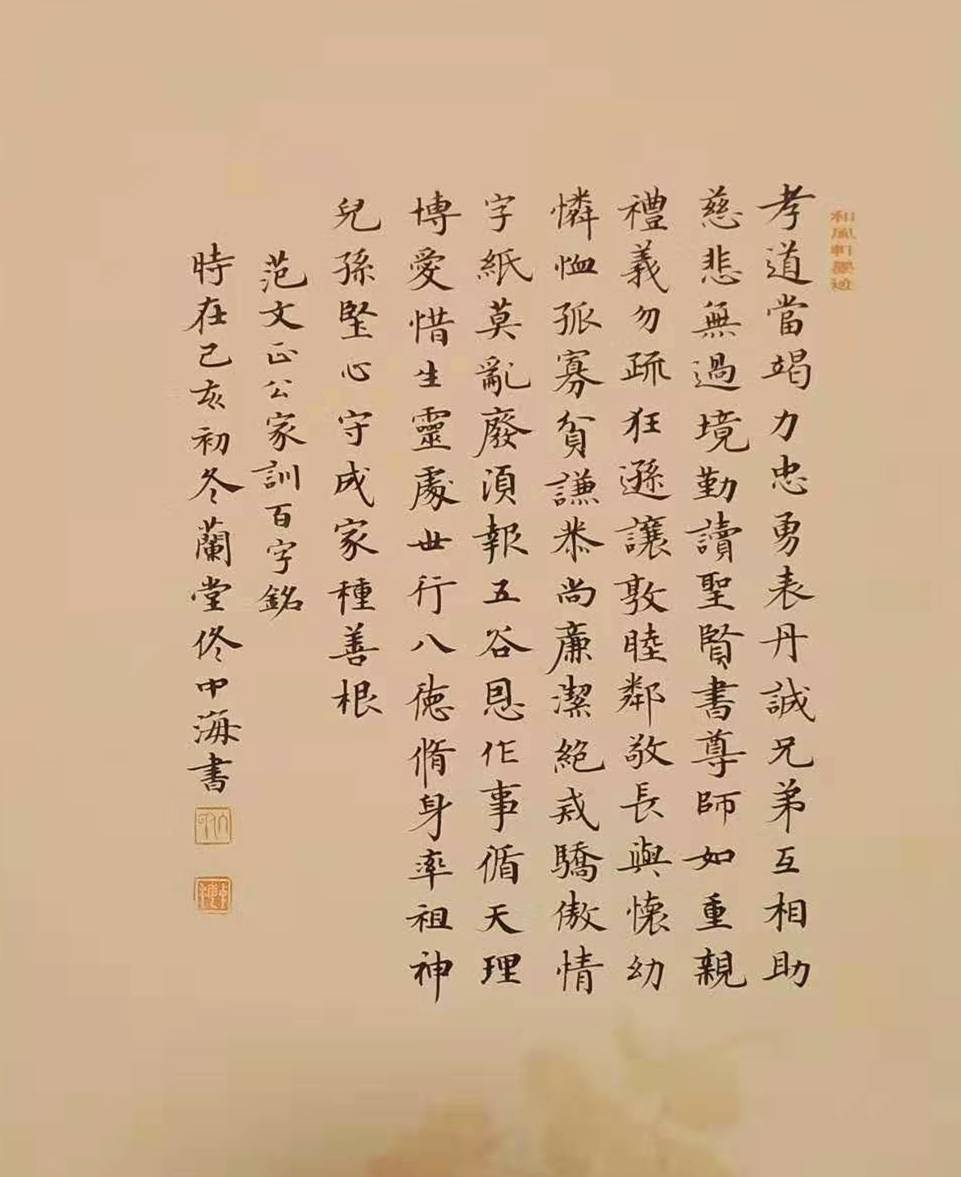 和風軒墨迹
孝道當竭力忠勇表丹誠兄弟互相助
慈悲無過境勤讀聖賢書尊師如重親
禮義勿疏狂遜讓敦睦鄰敬長與懷幼
憐恤孤寡貧謙恭尚廉潔絕戒驕傲情
字紙莫亂廢須報五谷恩作事循天理
博愛惜生靈處世行八德脩身率祖神
兒孫堅心守成家種善根
范文正公家訓百字銘
時在己亥初冬蘭堂佟中海書